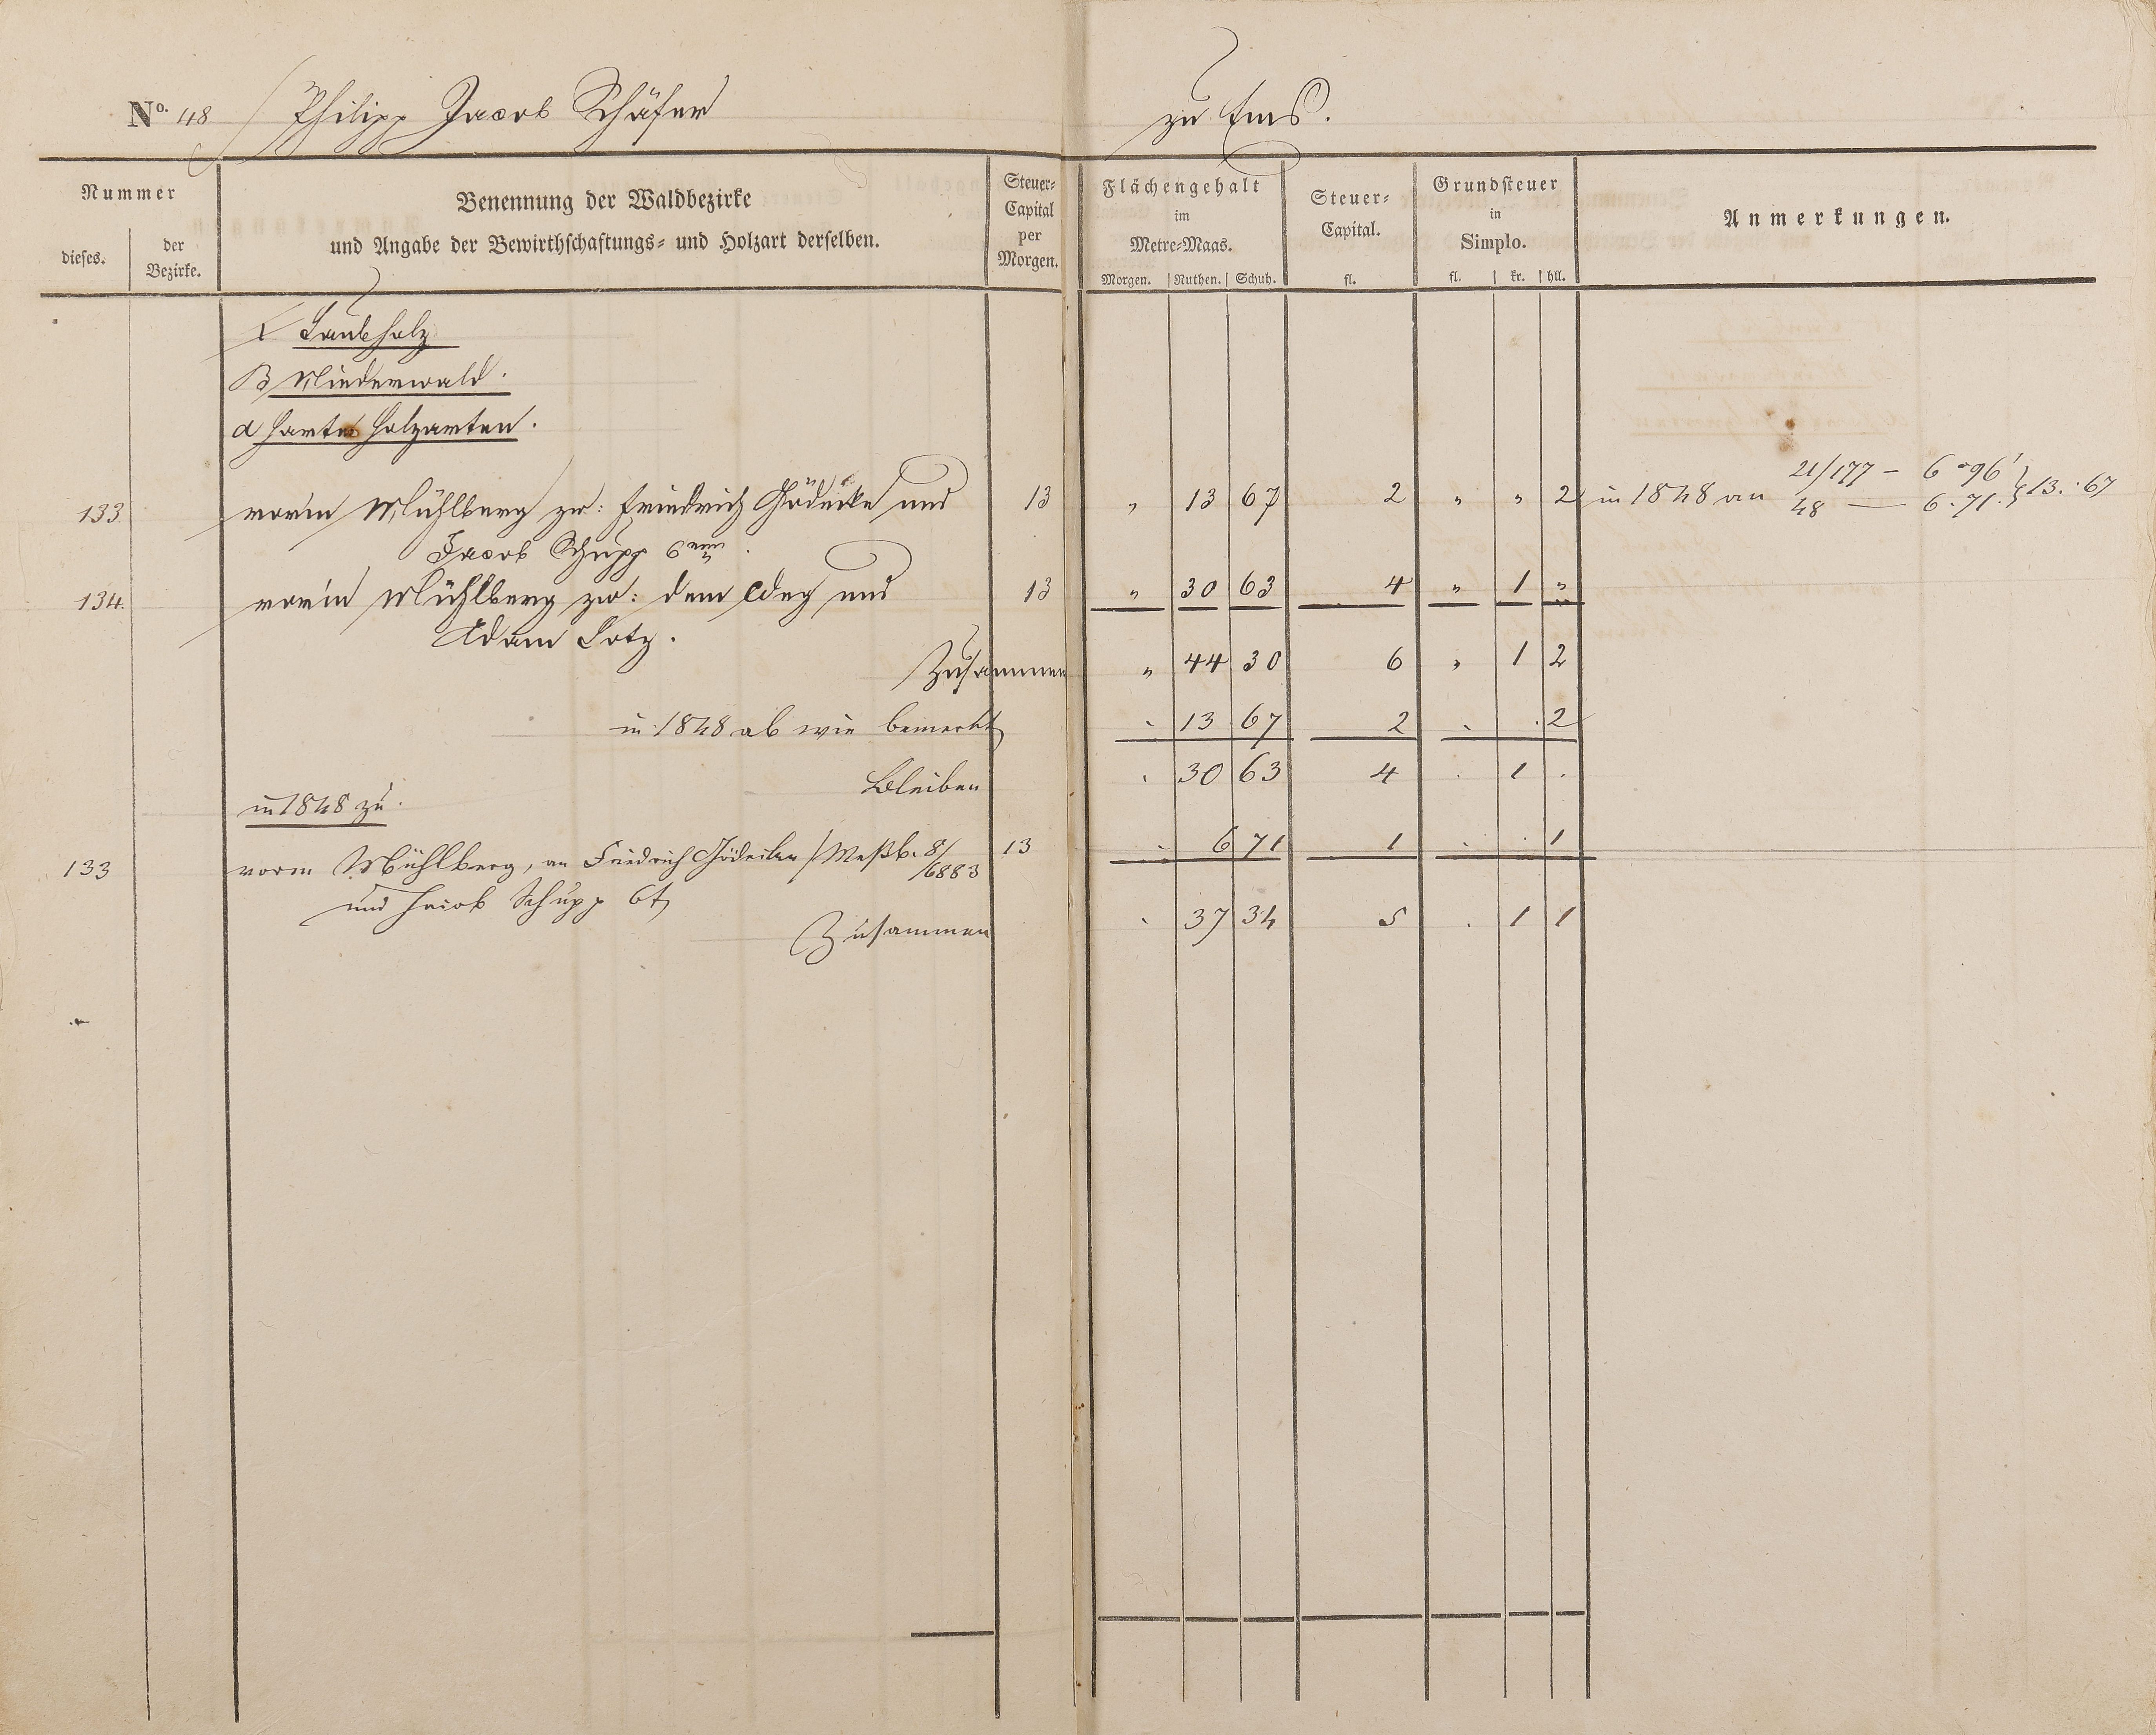 No. 48 Philipp Jacob Schäfer zu Ems.
Nummer
dieses. der Bezirke.
Benennung der Waldbezirke
und Angabe der Bewirthschaftungs- und Holzart derselben.
Steuer-Capital per Morgen.
Flächengehalt im Metre-Maas.
Morgen. Ruthen. Schuh.
Steuer-Capital.
fl.
Grundsteuer in Simplo.
fl. kr. hll.
Anmerkungen.
Laubholz
B Niederwald.
a harte Holzarten.
133 vorm Mühlberg zw: Friedrich Gödecke und 13 " 13 67 2 " " 2 in 1848 an 21/177 - 6 " 96' } 13. 67
48 — 6. 71.
Jacob Schupp 6ten.
134 vorm Mühlberg zw: dem Weg und 13 " 30 63 4 " 1 "
Adam Lotz.
Zusammen " 44 30 6 " 1 2
in 1848 ab wie bemerkt . 13 67 2 . . 2
Bleiben . 30 63 4 . 1 .
in 1848 zu.
133 vorm Mühlberg, an Friedrich Gödecken / Meßb. 8/6883 13 . 6 71 1 . . 1
und Jacob Schupp 6t
Zusammen . 37 34 5 . 1 1